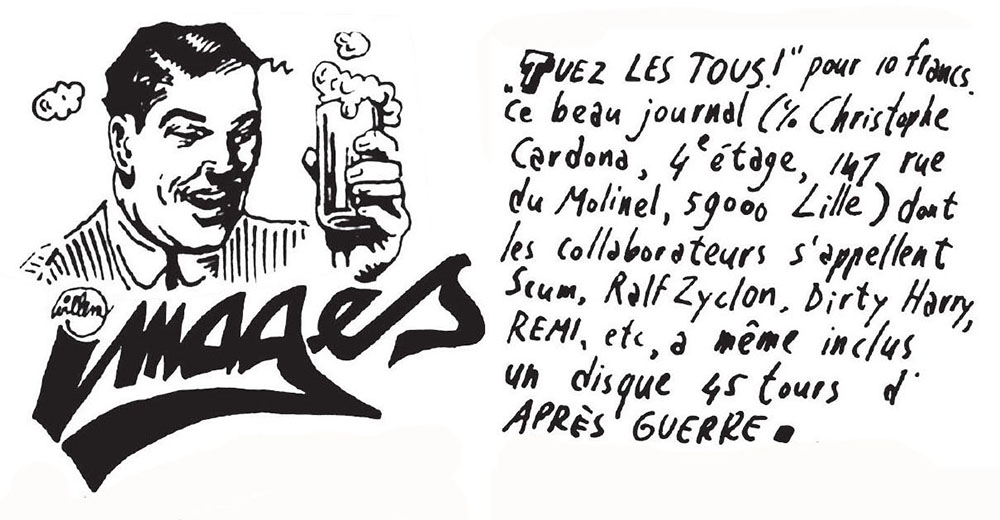 willem
images
„TUEZ LES TOUS!" pour 10 francs.
ce beau journal (% Christophe
Cardona, 4e étage, 147 rue
du Molinel, 59000 Lille) dont
les collaborateurs s'appellent
Scum, Ralf Zyclon, Dirty Harry,
REMI, etc, a même inclus
un disque 45 tours d'
APRÈS GUERRE.